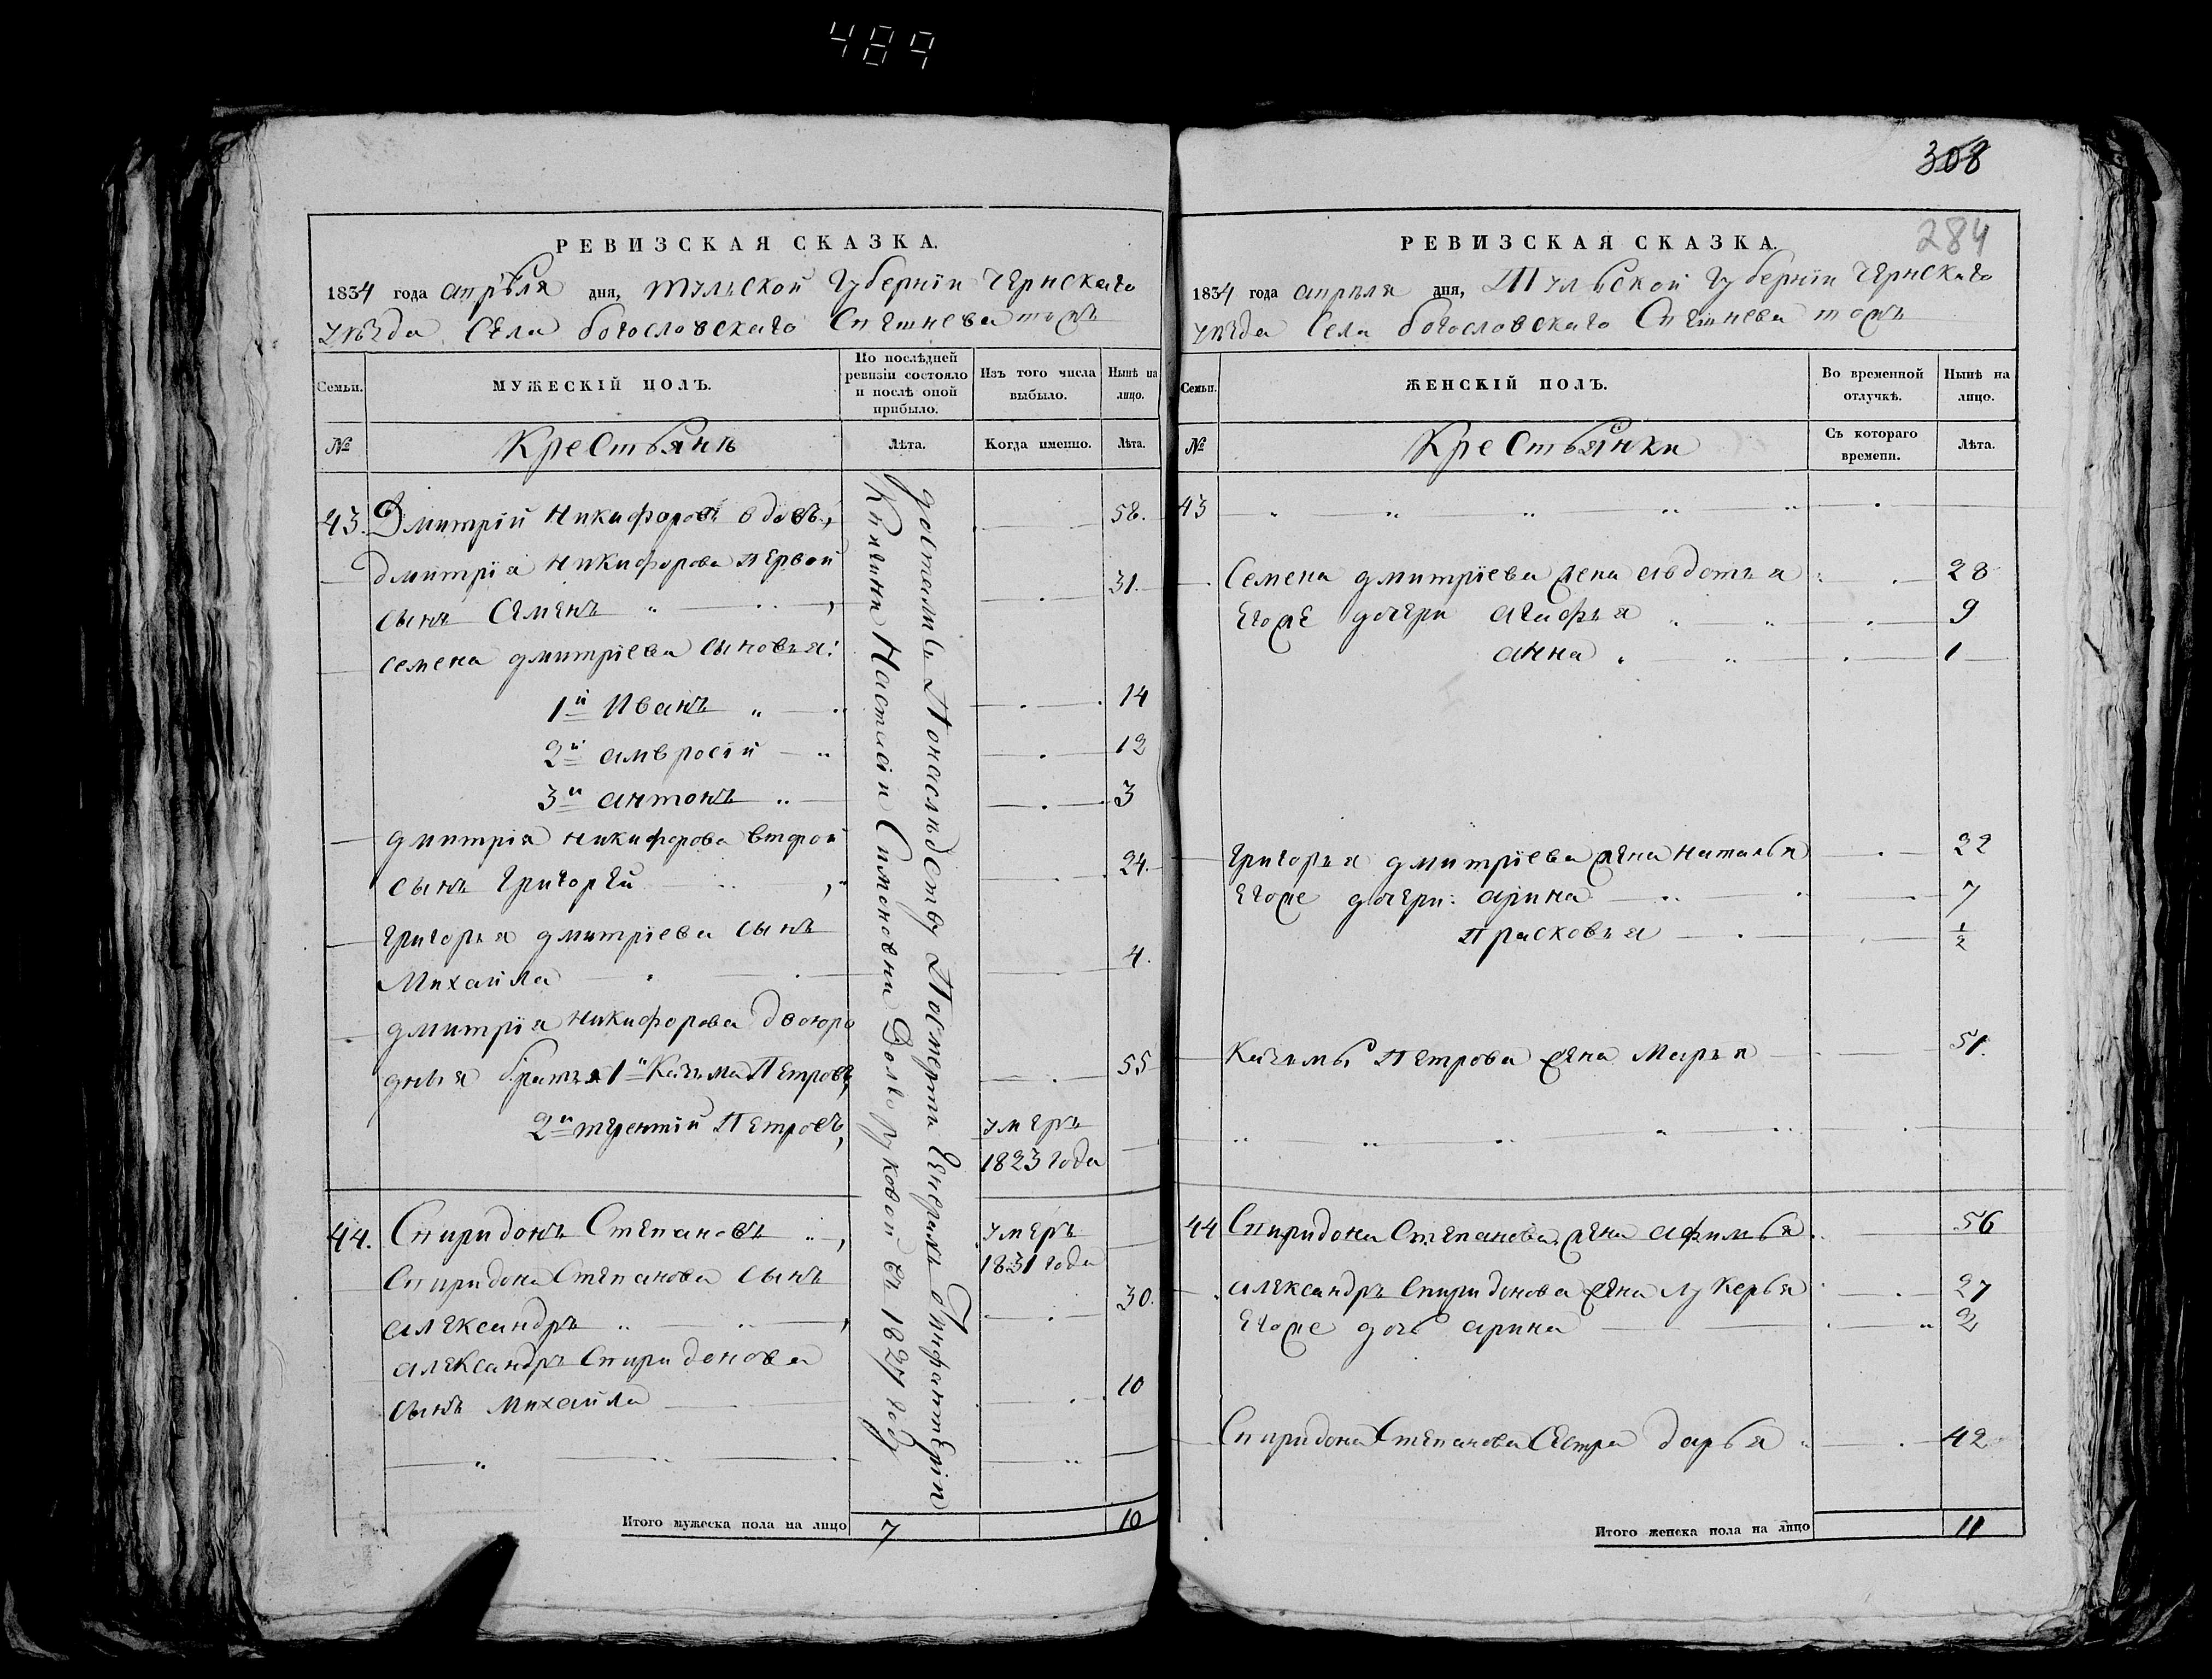 489
РЕВИЗСКАЯ СКАЗКА.
1834 года апрѣля дня, Тульской Губернїи Чернскаго
уѣзда Села богословскаго Спешнева тожъ
Семьи.
МУЖЕСКІЙ ПОЛЪ.
По послѣдней ревизіи состояло и послѣ оной прибыло.
Изъ того числа выбыло.
Нынѣ на лицо.
№
Крестьянъ
Лѣта.
Когда именно.
Лѣта.
43. Дмитрїй Никифоровъ вдовъ, 58.
Дмитрїя Никифорова первой
сынъ Семенъ 31.
семена дмитрїева сыновья:
1й Иванъ 14
2й амвросїй 12
3й антонъ 3
дмитрїя никифорова второй
сынъ григорей 24.
григорья дмитрїева сынъ
Михайла 4.
дмитрїя никифорова двоюро
дныя братья 1й Казьма Петровъ, 55
2й терентїй Петровъ, умеръ
1823 года
44. Спиридонъ Степановъ умеръ
1831 года
Спиридона Степанова сынъ
александръ 30.
александръ Спиридонова
сынъ михайла 10
достались Понаслѣдству Посмерти Генералъ Отинфантерїи
Княгини Настасїи Симоновни Долгоруковой въ 1827 году
Итого мужеска пола на лицо 7 10
308
284
РЕВИЗСКАЯ СКАЗКА.
1834 года апрѣля дня, Тульской Губернїи Чернскаго
уѣзда Села богословскаго Спешнева тожъ
Семьи.
ЖЕНСКІЙ ПОЛЪ.
Во временной отлучкѣ.
Нынѣ на лицо.
№
Крестьянки
Съ котораго времени.
Лѣта.
43
Семена дмитрїева жена авдотья 28
Егоже дочери агафья 9
анна 1
Григорья дмитрїева жена наталья 22
Егоже дочери: арина 7
прасковья 1/2
Казьмы Петрова жена Марья 51.
44 Спиридона Степанова жена афимья 56
александръ Спиридонова жена лукерья 27
Егоже дочь арина 2
Спиридона Степанова Сестра дарья 42
Итого женска пола на лицо 11